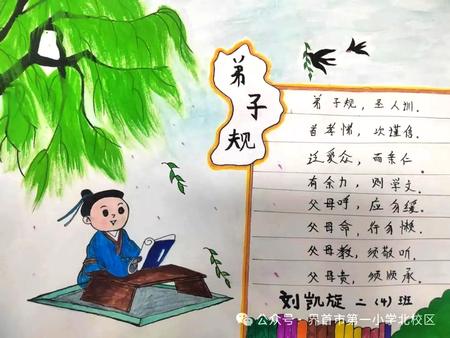 弟子规
弟子规，圣人训。
首孝悌，次谨信。
泛爱众，而亲仁。
有余力，则学文。
父母呼，应勿缓。
父母命，行勿懒。
父母教，须敬听。
父母责，须顺承。
刘凯旋 二（4）班
公众号·界首市第一小学北校区